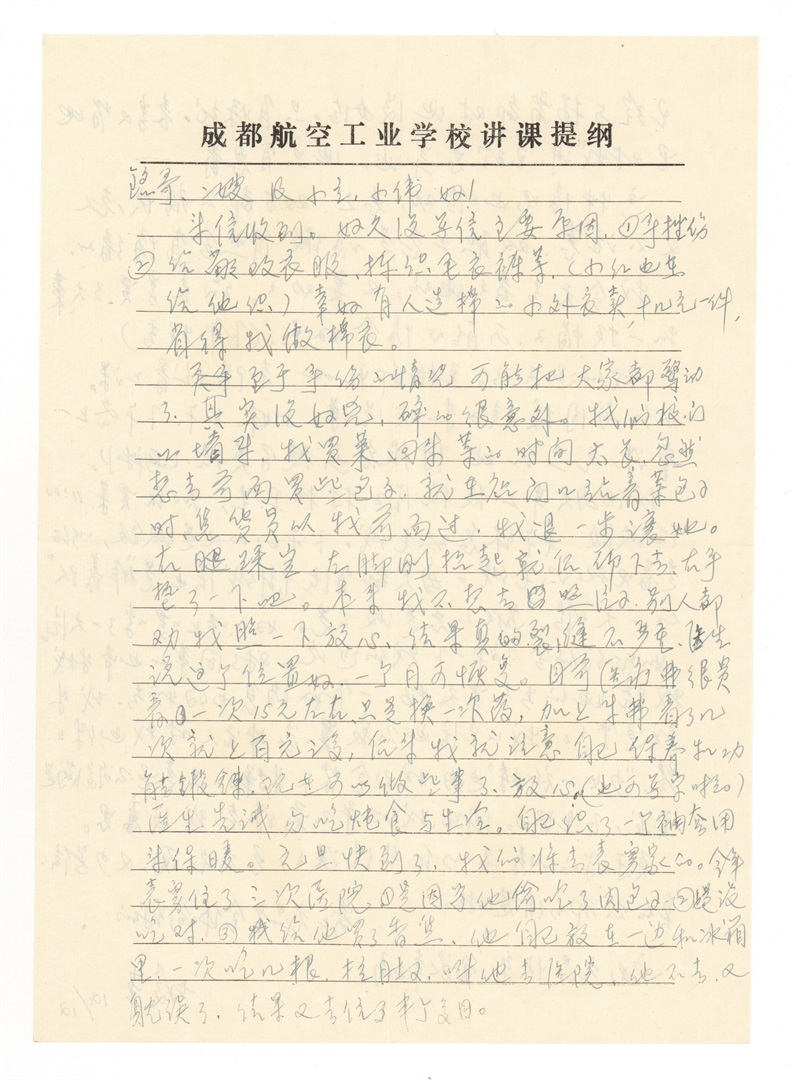 成都航空工业学校讲课提纲
哥、二嫂及小立、小伟好！
来信收到。好久没写信主要原因，①手挫伤
②给 改衣服、拆织毛衣裤等，（小红也在
给他织）幸好有人送棉的小外衣卖，十几元一件，
省得我做棉衣。
至于手伤的情况可能把大家都惊动
了，其实没好凶，碎的很意外。我们校门
的墙外，我买菜回来等的时间太长，忽然
想去前面买些包子，就在 门口站着等包子
时，售货员从我前面过，我退一步让她。
右腿踩空，左脚刚抬起就 下去，右手
垫了一下地。本来我不想去照 ，别人都
劝我照一下放心，结果真的裂缝不严重，医生
说这个位置好，一个月可恢复。目前医疗费很贵
一次15元左右，只是换一次药，加上车费看了几
次就上百元没，后来我就注意自己保养和功
能锻炼，现在可以做些事了，放心（也可写字啦）
医生告诫勿吃 食与生冷。自己织了一个袖套用
来保暖。元旦快到了，我们将去表舅家的。今年
表舅住了三次医院，①是因为他偷吃了肉包子，②是没
吃对，③我给他买了香蕉，他自己放在一边和冰箱
里，一次吃几根，拉肚子，叫他去医院，他不去，又
耽误了，结果又去住了半个多月。